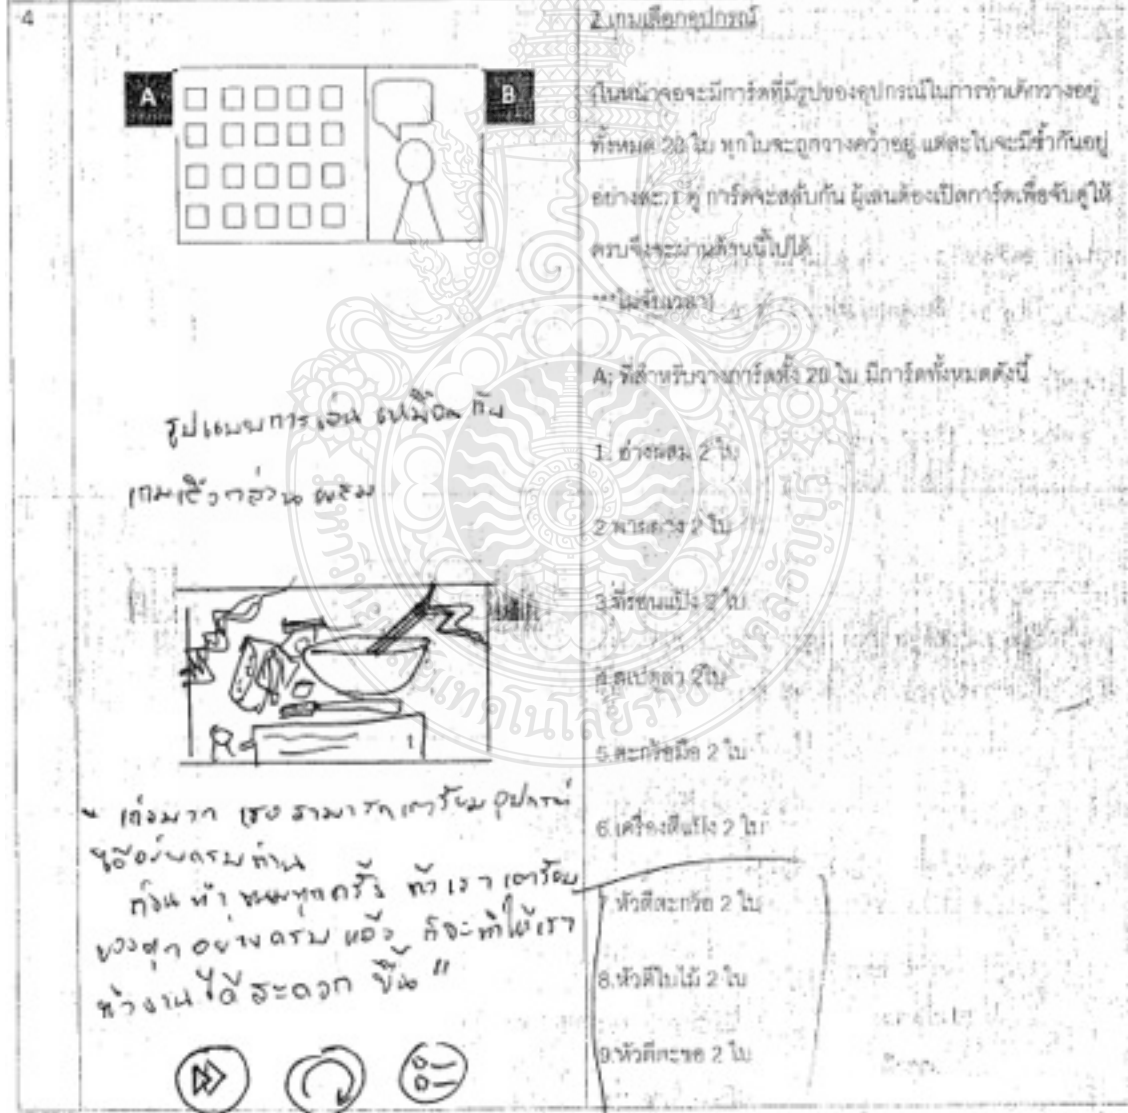 4
A
B
รูปแบบการเล่น เหมือนกับ
เกมเลือกส่วนผสม
1
" เก่งมาก เธอสามารถเตรียมอุปกรณ์
ได้อย่างครบถ้วน
ก่อนทำขนมทุกครั้ง ถ้าเราเตรียม
ของทุกอย่างครบแล้ว ก็จะทำให้เรา
ทำงานได้สะดวกขึ้น "
2.เกมเลือกอุปกรณ์
(ในหน้าจอจะมีการ์ดที่มีรูปของอุปกรณ์ในการทำเค้กวางอยู่
ทั้งหมด 20 ใบ ทุกใบจะถูกวางคว่ำอยู่ แต่ละใบจะมีซ้ำกันอยู่
อย่างละ 1 คู่ การ์ดจะสลับกัน ผู้เล่นต้องเปิดการ์ดเพื่อจับคู่ให้
ครบจึงจะผ่านด่านนี้ไปได้
***ไม่จับเวลา)
A; ที่สำหรับวางการ์ดทั้ง 20 ใบ มีการ์ดทั้งหมดดังนี้
1. อ่างผสม 2 ใบ
2.พายยาง 2 ใบ
3.ที่ร่อนแป้ง 2 ใบ
4.สแปตูล่า 2ใบ
5.ตะกร้อมือ 2 ใบ
6.เครื่องตีแป้ง 2 ใบ
7.หัวตีตะกร้อ 2 ใบ
8.หัวตีใบไม้ 2 ใบ
9.หัวตีตะขอ 2 ใบ